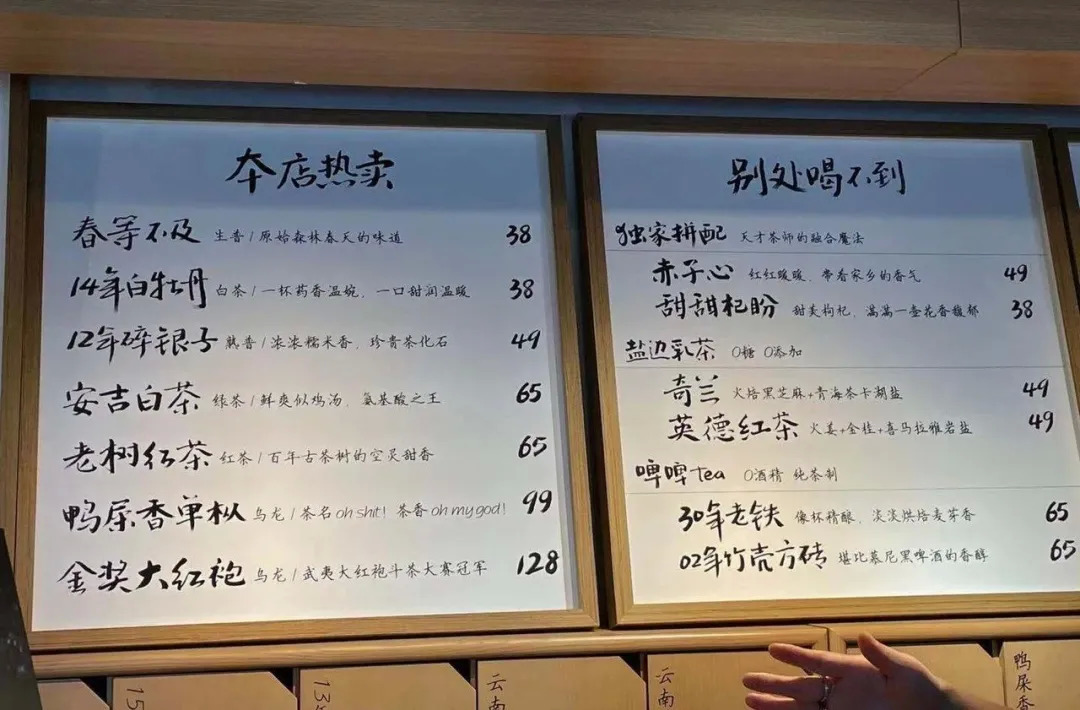 本店热卖
春等不及 生普/原始森林春天的味道 38
14年白牡丹 白茶/一杯药香温婉，一口甜润温暖 38
12年碎银子 熟普/浓浓糯米香，珍贵茶化石 49
安吉白茶 绿茶/鲜爽似鸡汤，氨基酸之王 65
老树红茶 红茶/百年古茶树的空灵甜香 65
鸭屎香单枞 乌龙/茶名oh shit! 茶香oh my god! 99
金奖大红袍 乌龙/武夷大红袍斗茶大赛冠军 128
别处喝不到
独家拼配 天才茶师的融合魔法
赤子心 红红暖暖，带着家乡的香气 49
甜甜杞盼 甜美枸杞，满满一壶花香馥郁 38
盐边乳茶 0糖 0添加
奇兰 火焙黑芝麻+青海茶卡湖盐 49
英德红茶 火姜+金桂+喜马拉雅岩盐 49
啤啤tea 0酒精 纯茶制
30年老铁 像杯精酿，淡淡烘焙麦芽香 65
02年竹壳方砖 堪比慕尼黑啤酒的香醇 65
15
13
云南
云南
鸭屎香